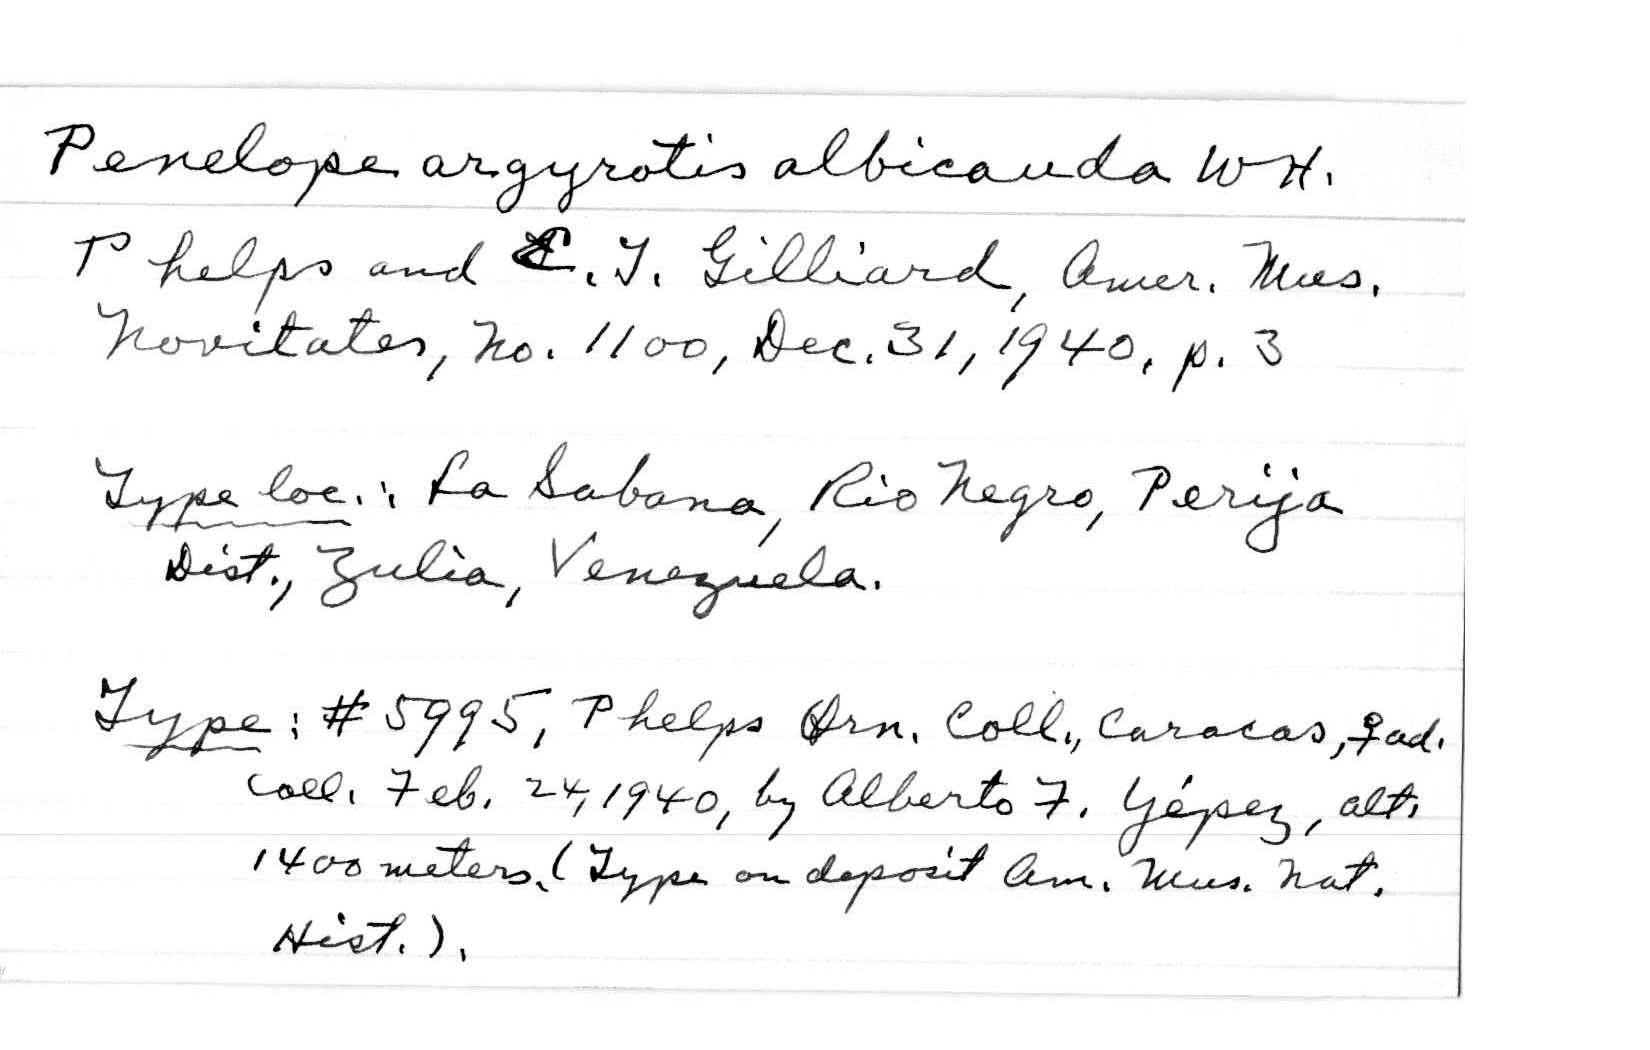 Penelope argyrotis albicauda WH.
Phelps and E.T. Gilliard, Amer. Mus.
Novitates, No. 1100, Dec. 31, 1940, p. 3
Type loc.: La Sabana, Rio Negro, Perija
Dist., Zulia, Venezuela.
Type: # 5995, Phelps Orn. Coll., Caracas, ♀ ad.
Coll. Feb. 24, 1940, by Alberto F. Yépez, alt.
1400 meters. (Type on deposit Am. Mus. Nat.
Hist.).